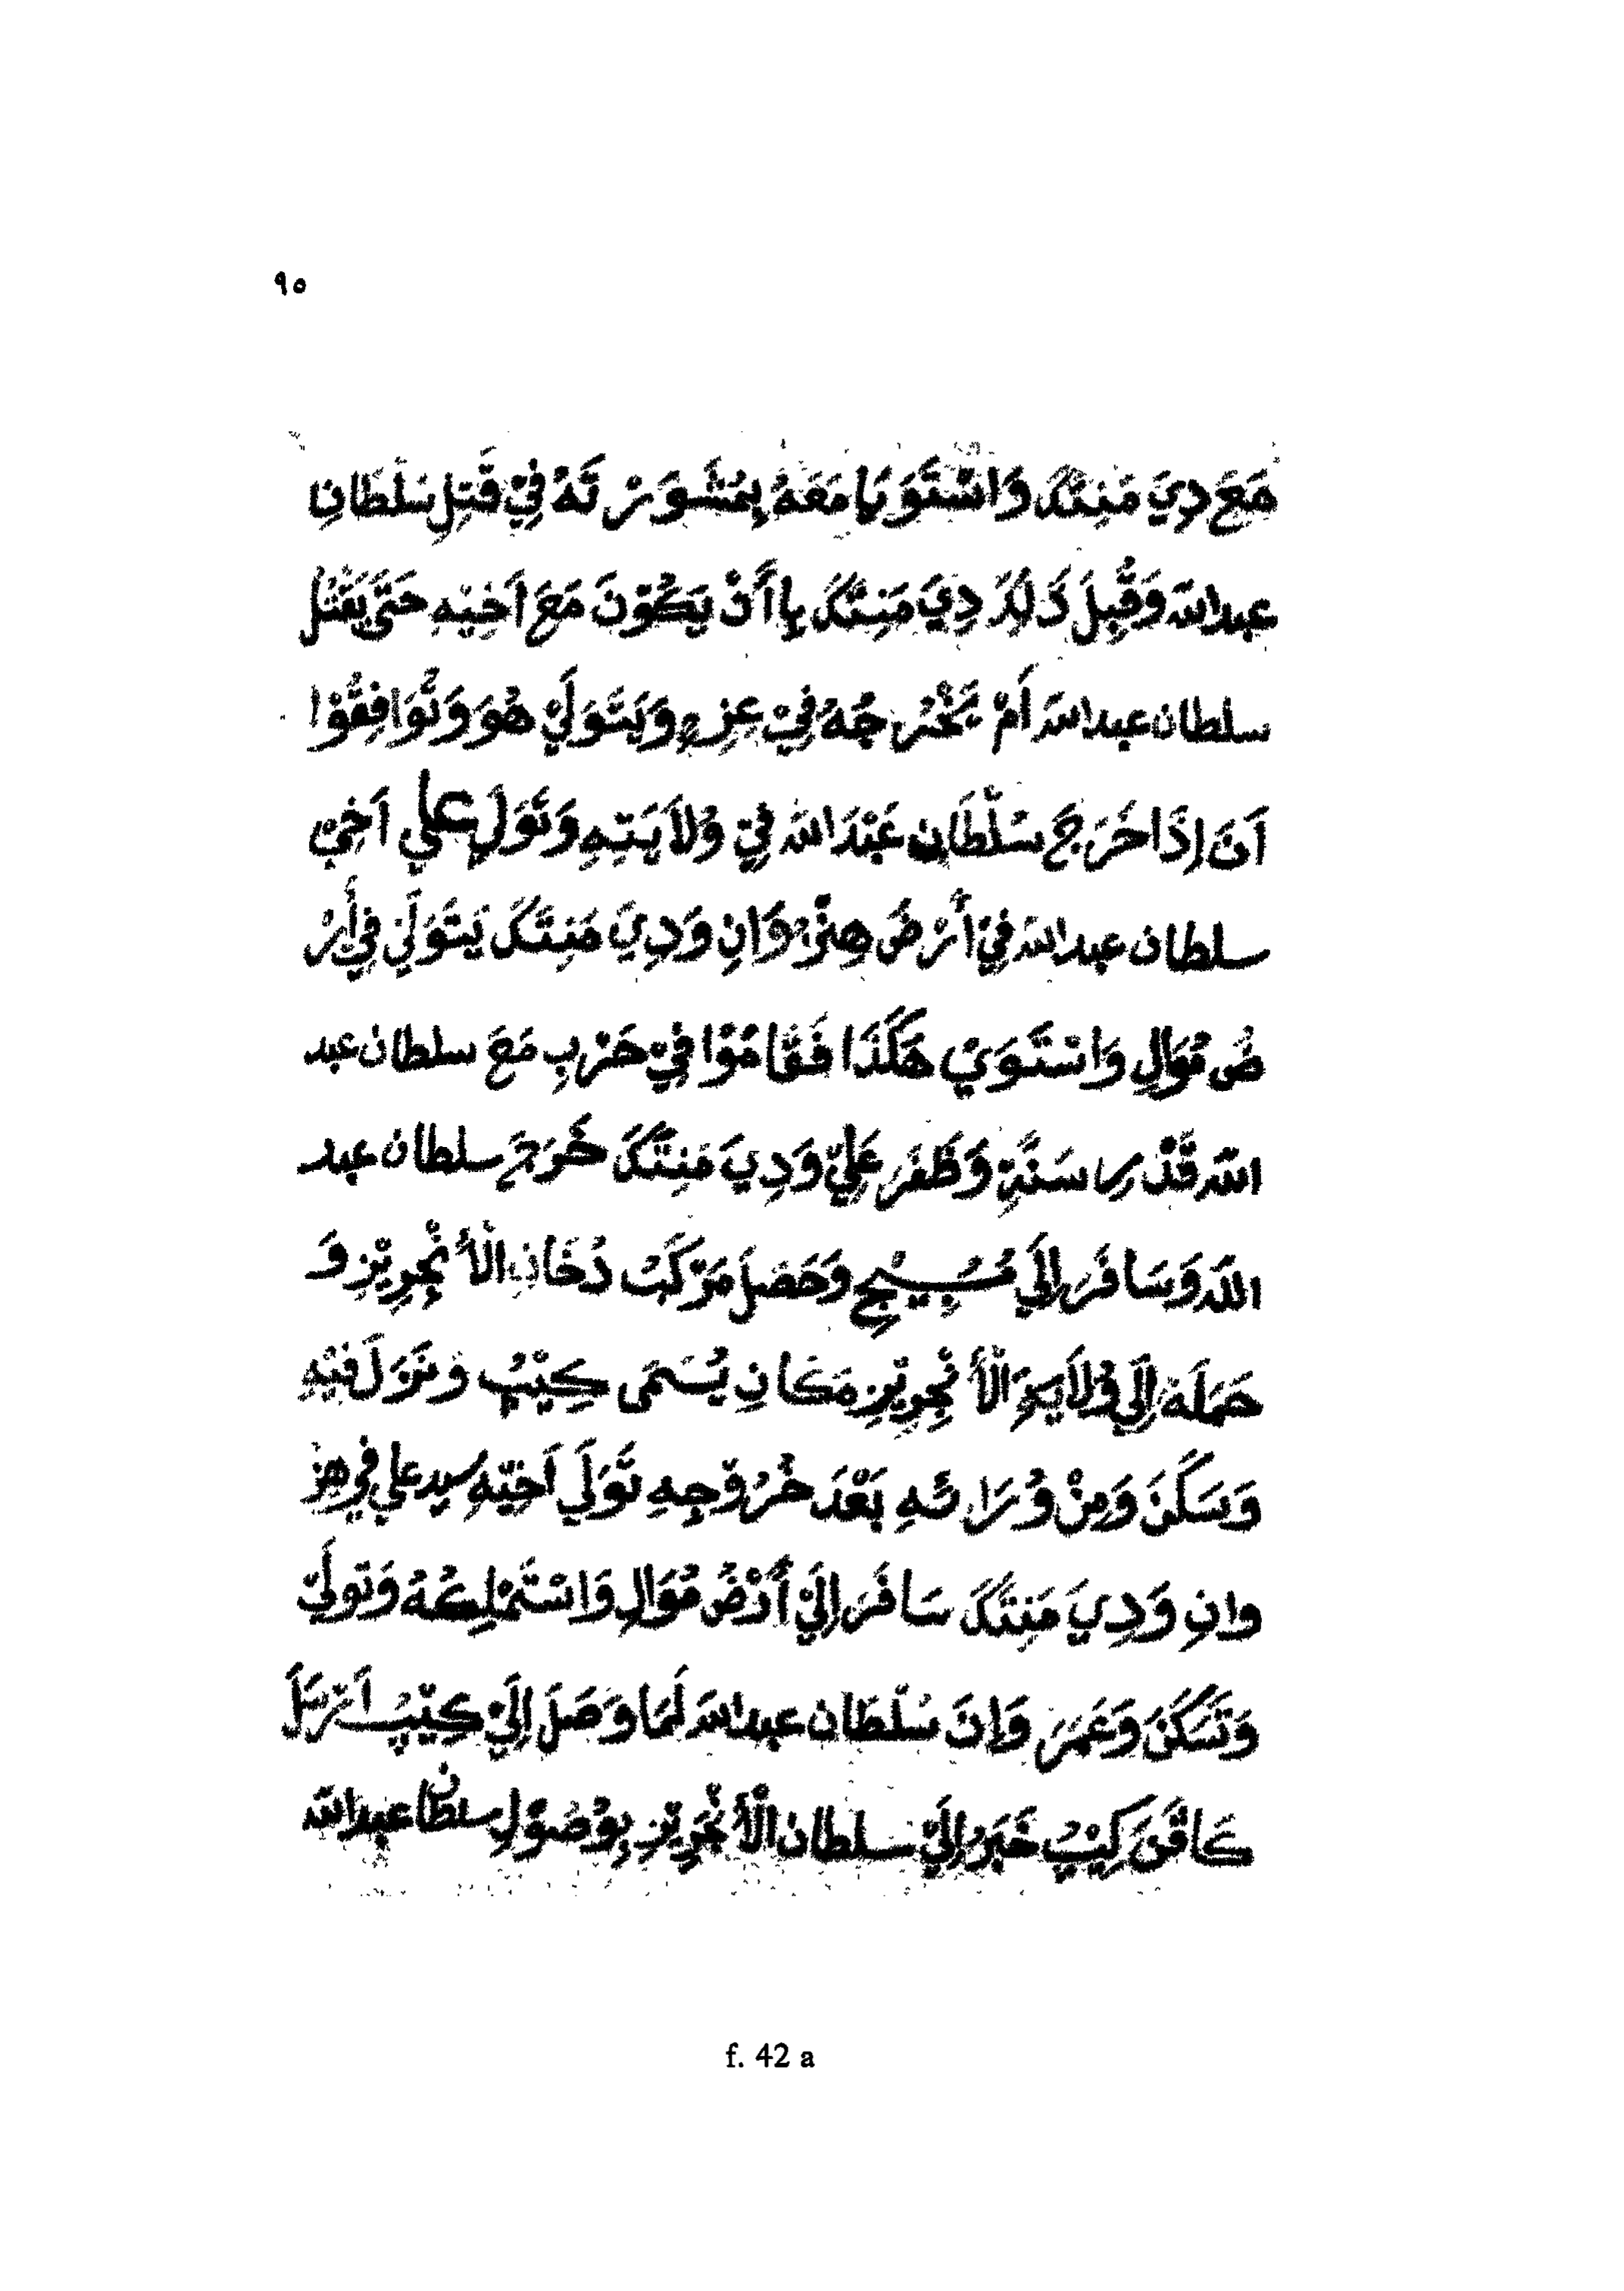 ٩٥
مَعَ دِيَ مَنِتَكَ وَاسْتَوَيَا مَعَهُ بِمُشَوَرْتَهُ فِيْ قَتِلِ سُلْطَانِ
عبد الله وَقَبِلَ ذَلِكَ دِيَ مَنِتَكَ بِاأَنْ يَكُوْنَ مَعَ اَخِيْهِ حَتَّى يَقْتُلْ
سلطان عبد الله اَمْ يَخْرُجُهُ فِيْ عِزِهِ وَيَتَوَلَيْ هُوَ وَتُوَافِقُوْا
اَنَ اِذَا خَرَجَ سُلْطَان عَبْدَ الله فِيْ وُلاَيَتِهِ وَتَوَلَ علي اَخِيْ
سلطان عبد الله فِيْ اَرْضَ هِنْزُوَانِ وَدِيَ مَنِتَكَ يَتَوَلَيْ فِيْ أَرْ
ضُ مُوَالِ وَاسْتَوَيْ هَكَذَا فَقَامُوْا فِيْ حَرْبِ مَعَ سلطان عبد
الله قَدْرِ سَنَةٍ وَظَفَرَ عَلِيْ وَدِيَ مَنِتَكَ خَرَجَ سلطان عبد
الله وَسَافَرَ اِلَيْ مُسُبِيْجِ وَحَصَلَ مَرْكَبْ دُخَانِ الْأَنْجِرِيْزِ وَ
حَمَلَهُ اِلَى وُلاَيَةِ الْأَنْجِرِيْزِ مَكَانِ يُسَمَى كِيْبُ وَنَزَلَ فِيْهِ
وَسَكَنَ وَمِنْ وُرَائَهِ بَعْدَ خُرُوْجِهِ تَوَلَي اَخِيْهِ سيد علي في هنز
وانِ وَدِيَ مَنِتَكَ سَافَرَ اِلَيْ أَرْضُ مُوَالِ وَاسْتَمْلِكُهُ وَتولَيْ
وَتَسَكَنَ وَعَمَرَ وَاِنَ سُلْطَان عبد الله لَمَا وَصَلَ اِلَيْ كِيْبُ اَرْسَلَ
كَافَنَ كِيْبُ خَبَرُ اِلَيْ سلطان الْأَنْجَرِيْزِ بِوُصُوْلِ سلطان عبد الله
f. 42 a